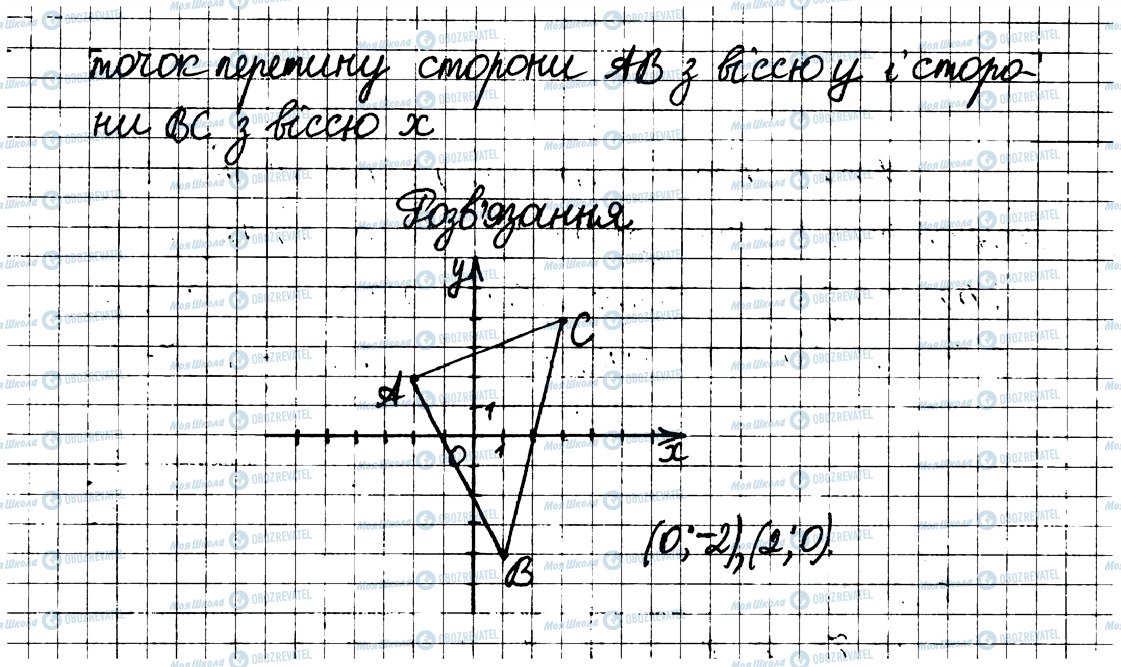 точок перетину сторони АВ з віссю у і сторо-
ни ВС з віссю х
Розв'язання
у
С
А
1
О
1
х
В
(0; -2), (2; 0).
МояШкола OBOZREVATEL